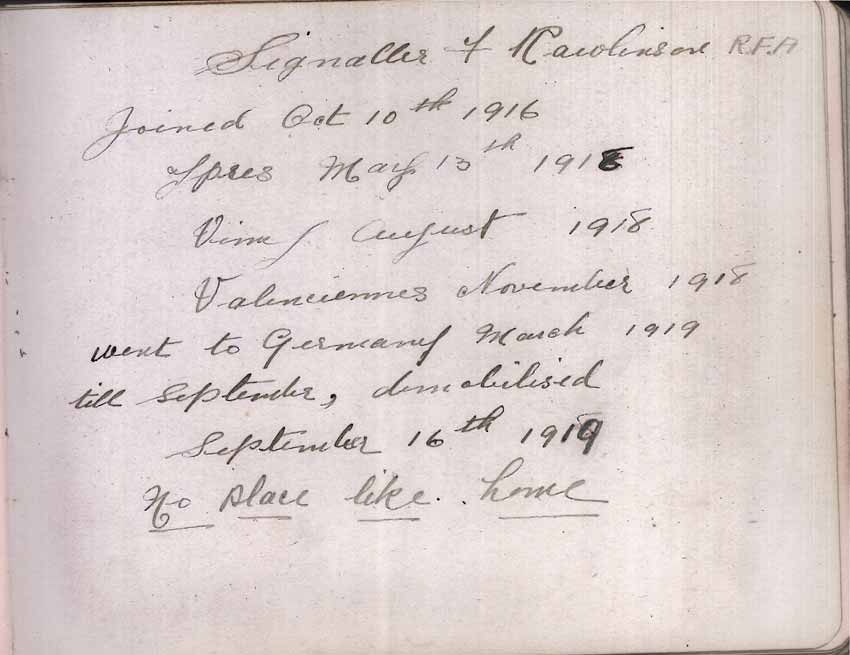 Signaller F Rawlinson R.F.A
Joined Oct 10th 1916
Ypres May 13th 1918
Vimy August 1918
Valenciennes November 1918
went to Germany March 1919
till September, demobilised
September 16th 1919
No place like. home